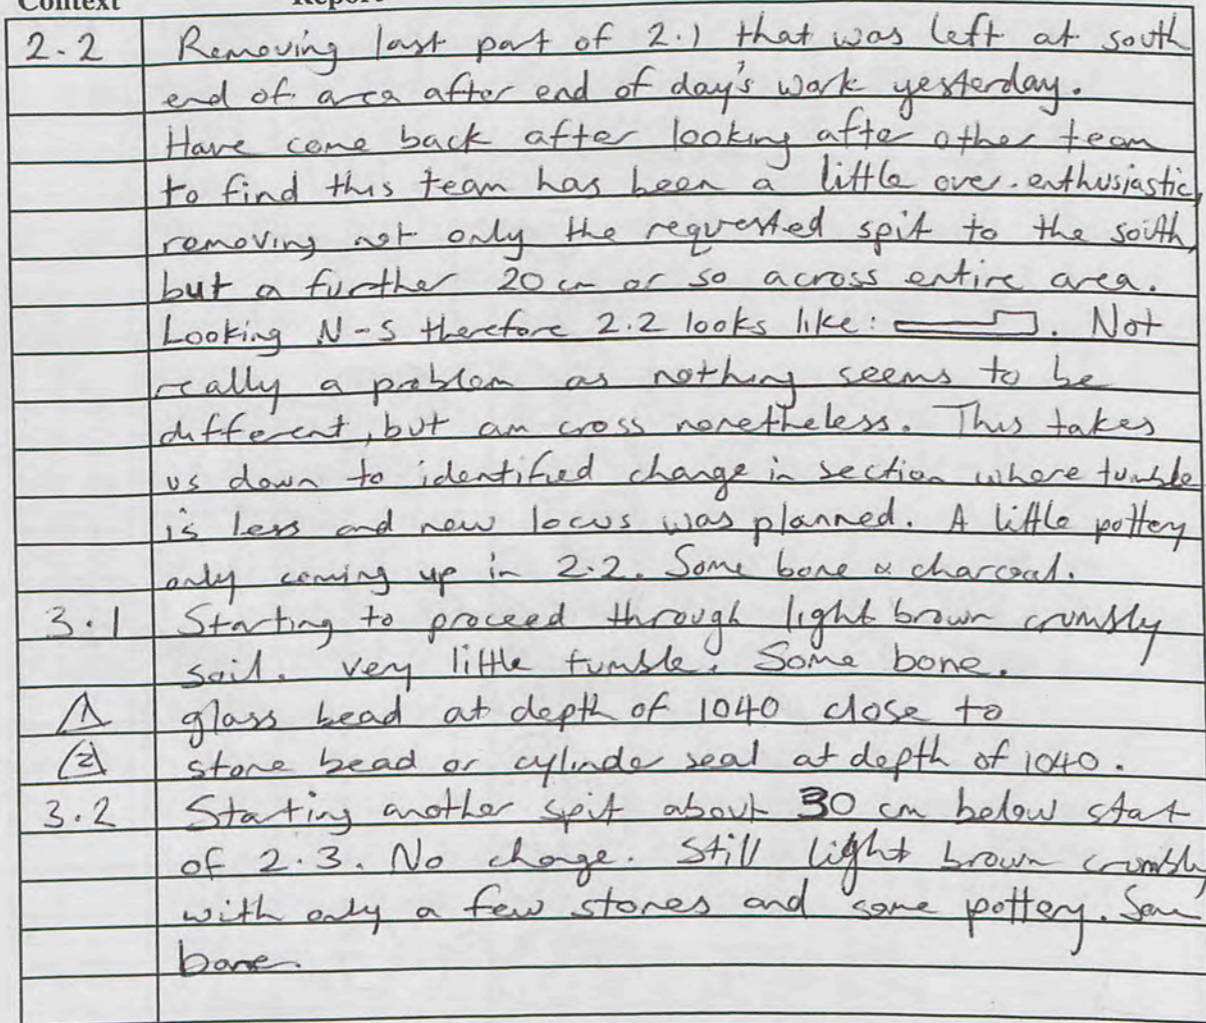 Context Report
2.2 Removing last part of 2.1 that was left at south
end of area after end of day's work yesterday.
Have come back after looking after other team
to find this team has been a little over-enthusiastic,
removing not only the requested spit to the south,
but a further 20 cm or so across entire area.
Looking N-S therefore 2.2 looks like: . Not
really a problem as nothing seems to be
different, but am cross nonetheless. This takes
us down to identified change in section where tumble
is less and new locus was planned. A little pottery
only coming up in 2.2. Some bone & charcoal.
3.1 Starting to proceed through light brown crumbly
soil. Very little tumble. Some bone.
1 glass bead at depth of 1040 close to
2 stone bead or cylinder seal at depth of 1040.
3.2 Starting another spit about 30 cm below start
of 2.3. No change. Still light brown crumbly
with only a few stones and some pottery. Some
bone.